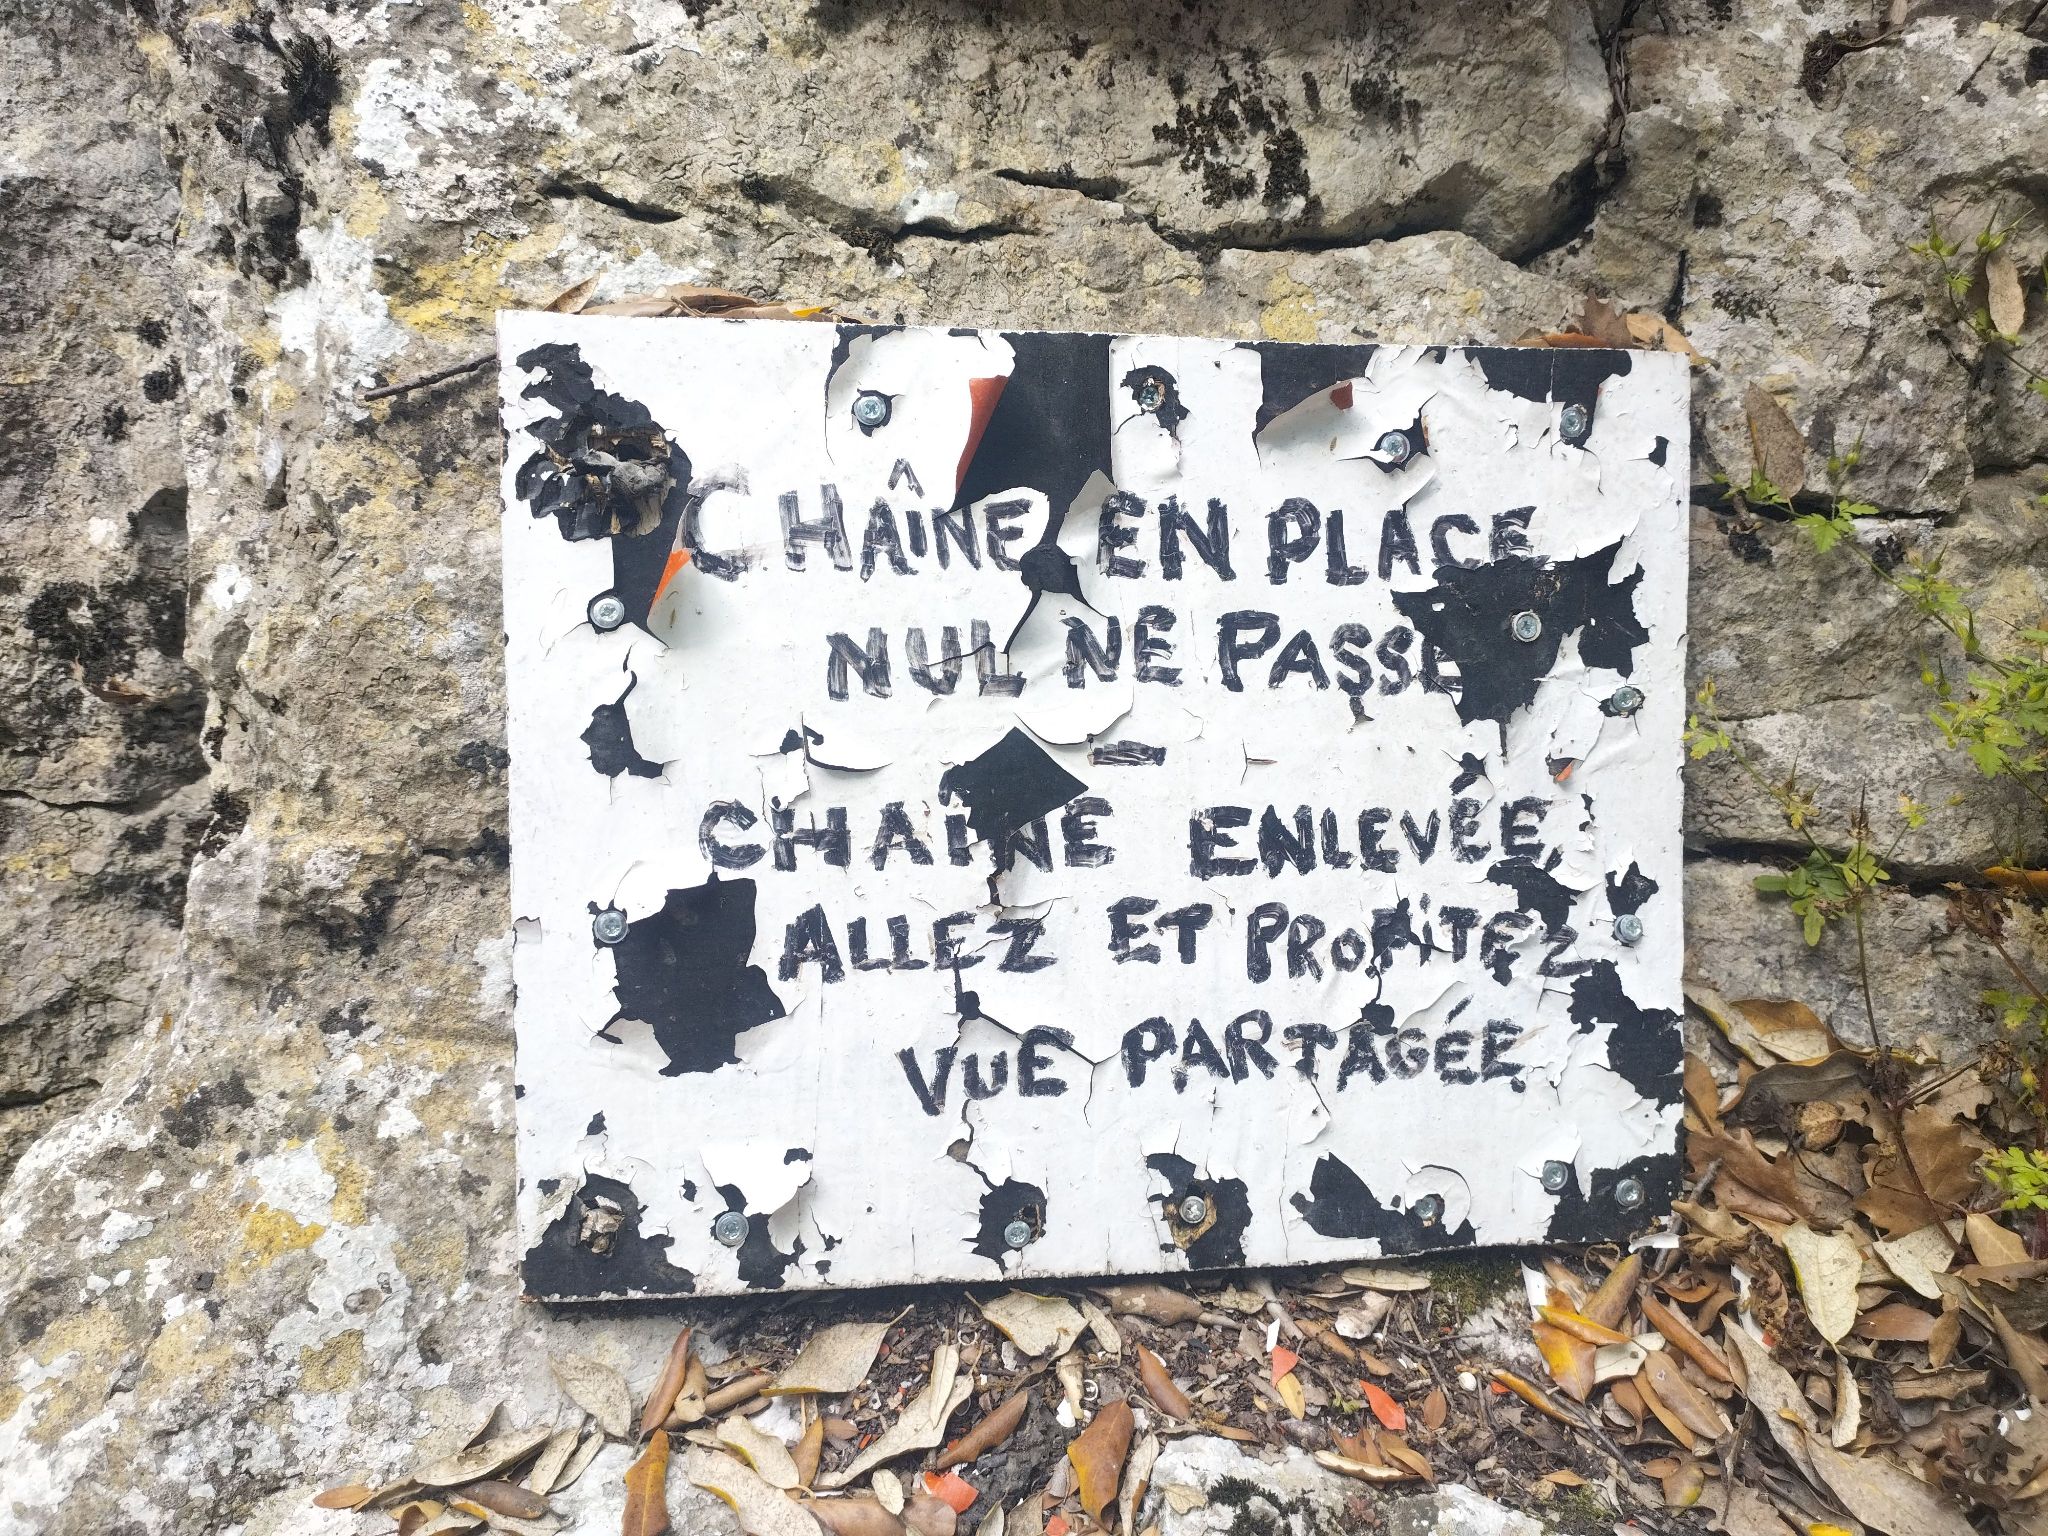 CHAÎNE EN PLACE
NUL NE PASSE
-
CHAÎNE ENLEVÉE,
ALLEZ ET PROFITEZ
VUE PARTAGÉE